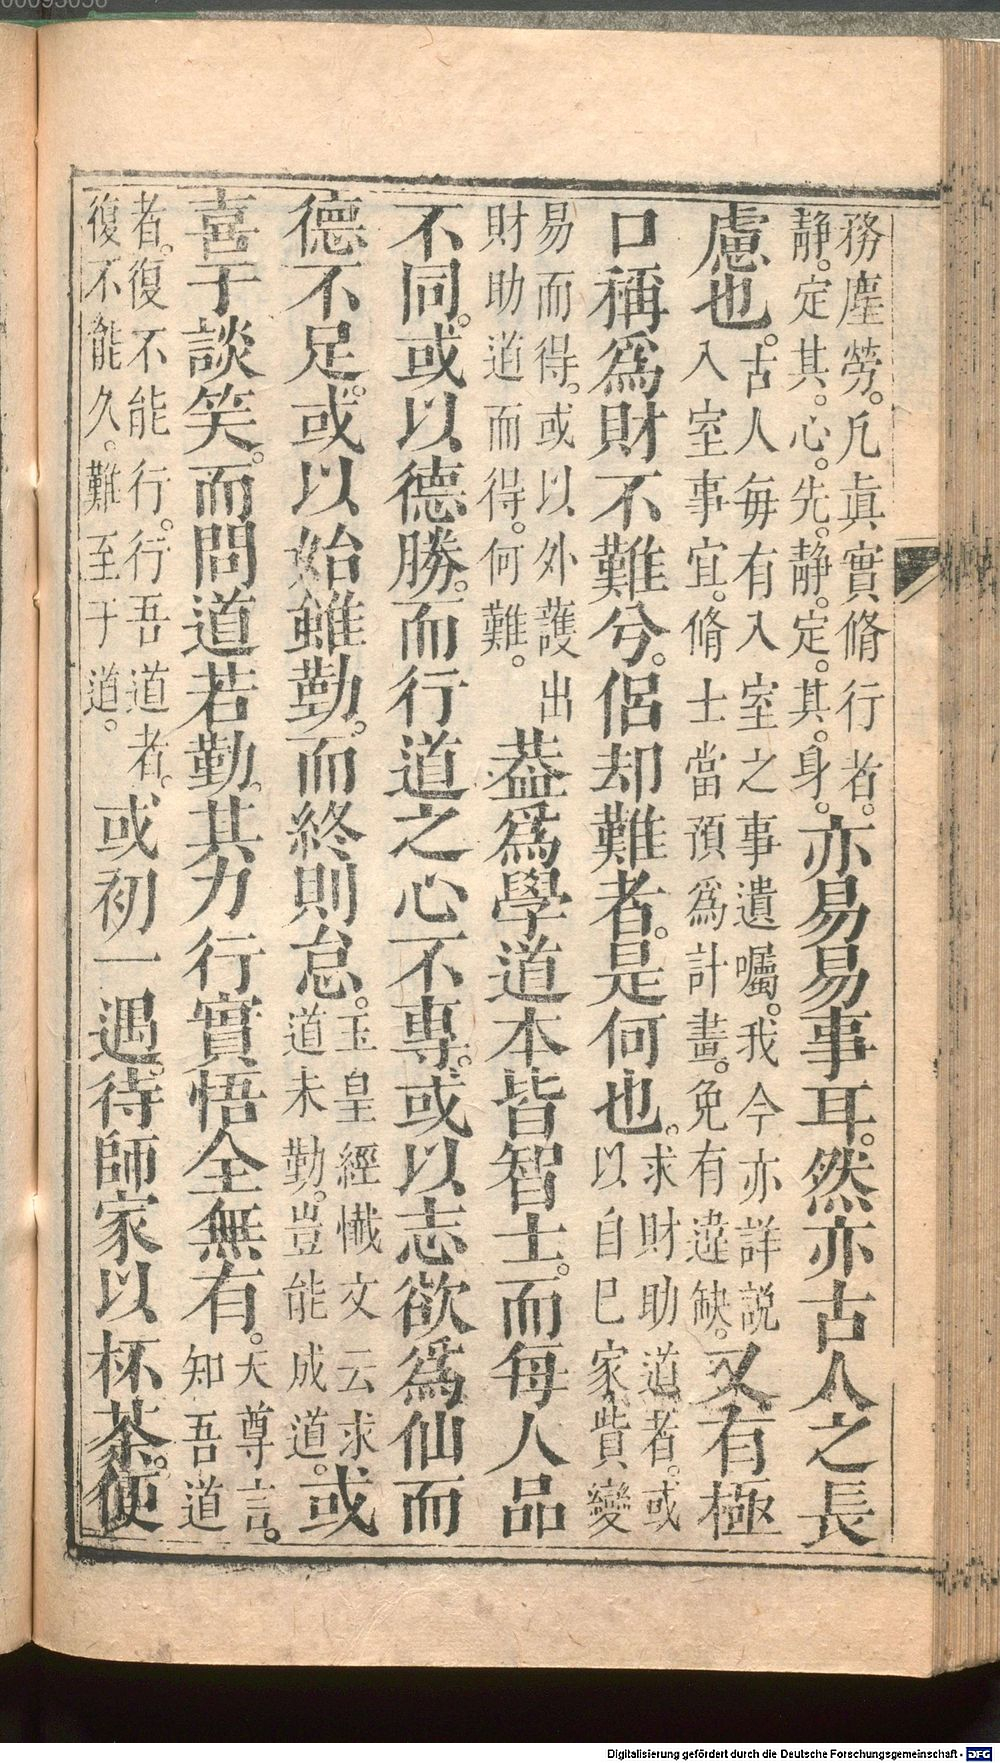 務塵勞。凡眞實脩行者。
靜。定其。心。先。靜。定。其。身。亦易易事耳。然亦古人之長
慮也。古人每有入室之事遺囑。我今亦詳説
入室事宜。脩士當預爲計畫。免有違缺。又有極
口稱爲財不難兮。侶却難者。是何也。求財助道者。或
以自巳家貲變
易而得。或以外護出
財助道而得。何難。葢爲學道本皆智士。而每人品
不同。或以德勝。而行道之心不專。或以志欲爲仙而
德不足。或以始雖勤。而終則怠。玉皇經懴文云求
道未勤。豈能成道。或
喜于談笑。而問道若勤。其力行實悟全無有。天尊言。
知吾道
者。復不能行。行吾道者。
復不能久。難至于道。或初一遇。待師家以杯茶。便
00093056
Digitalisierung gefördert durch die Deutsche Forschungsgemeinschaft - DFG